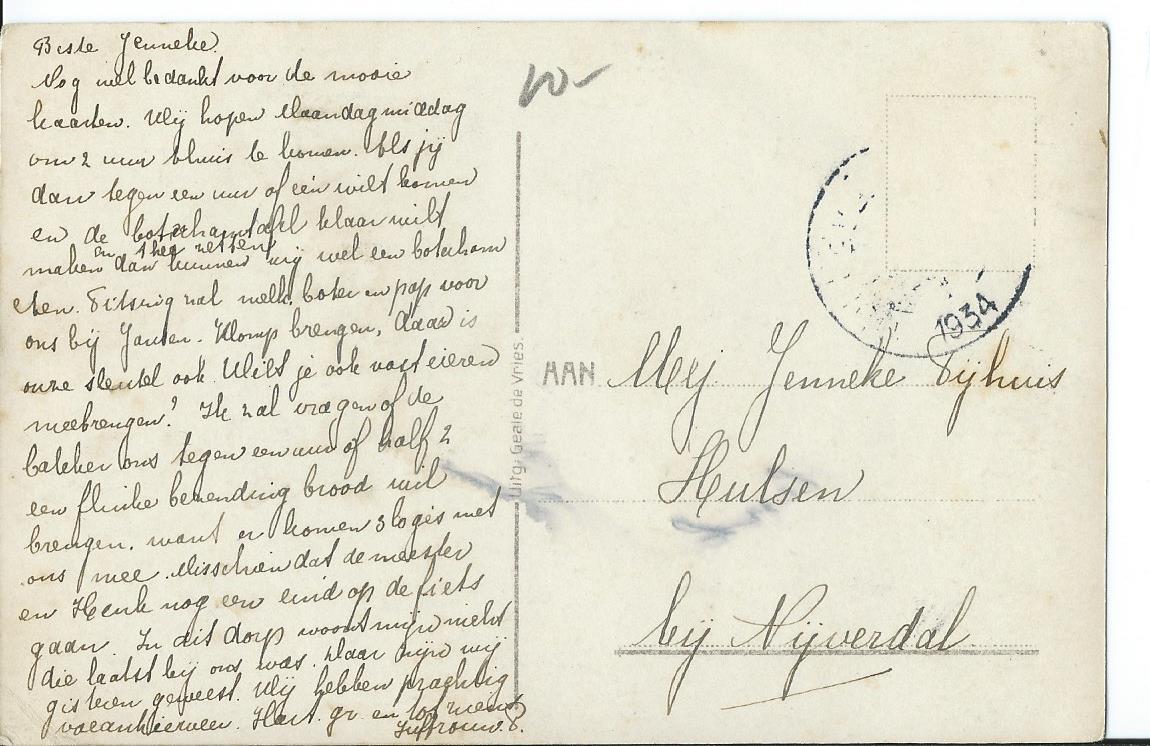 Beste Jenneke.
Nog wel bedankt voor de mooie
kaarten. Wij hopen Maandagmiddag
om 2 uur thuis te komen. Als jij
dan tegen een uur of één wilt komen
en de boterhamtafel klaar wilt
maken en thee zetten
dan kunnen wij wel een boterham
eten. zal melk, boter en pap voor
ons bij Jansen-Klomp brengen, daar is
onze sleutel ook. Wilt je ook vast eieren
meebrengen? Ik zal vragen of de
bakker ons tegen een uur of half 2
een flinke bezending brood wil
brengen, want er komen 3 logés met
ons mee. Misschien dat de meester
en Henk nog een eind op de fiets
gaan. In dit dorp woont mijn nicht
die laatst bij ons was. Daar zijn wij
gisteren geweest. Wij hebben prachtig
vacantieweer. Hart. gr. en tot ziens
Juffrouw.
10-
Uitg. Geale de Vries.
1934
AAN Mej Jenneke Tijhuis
Hulsen
bij Nijverdal